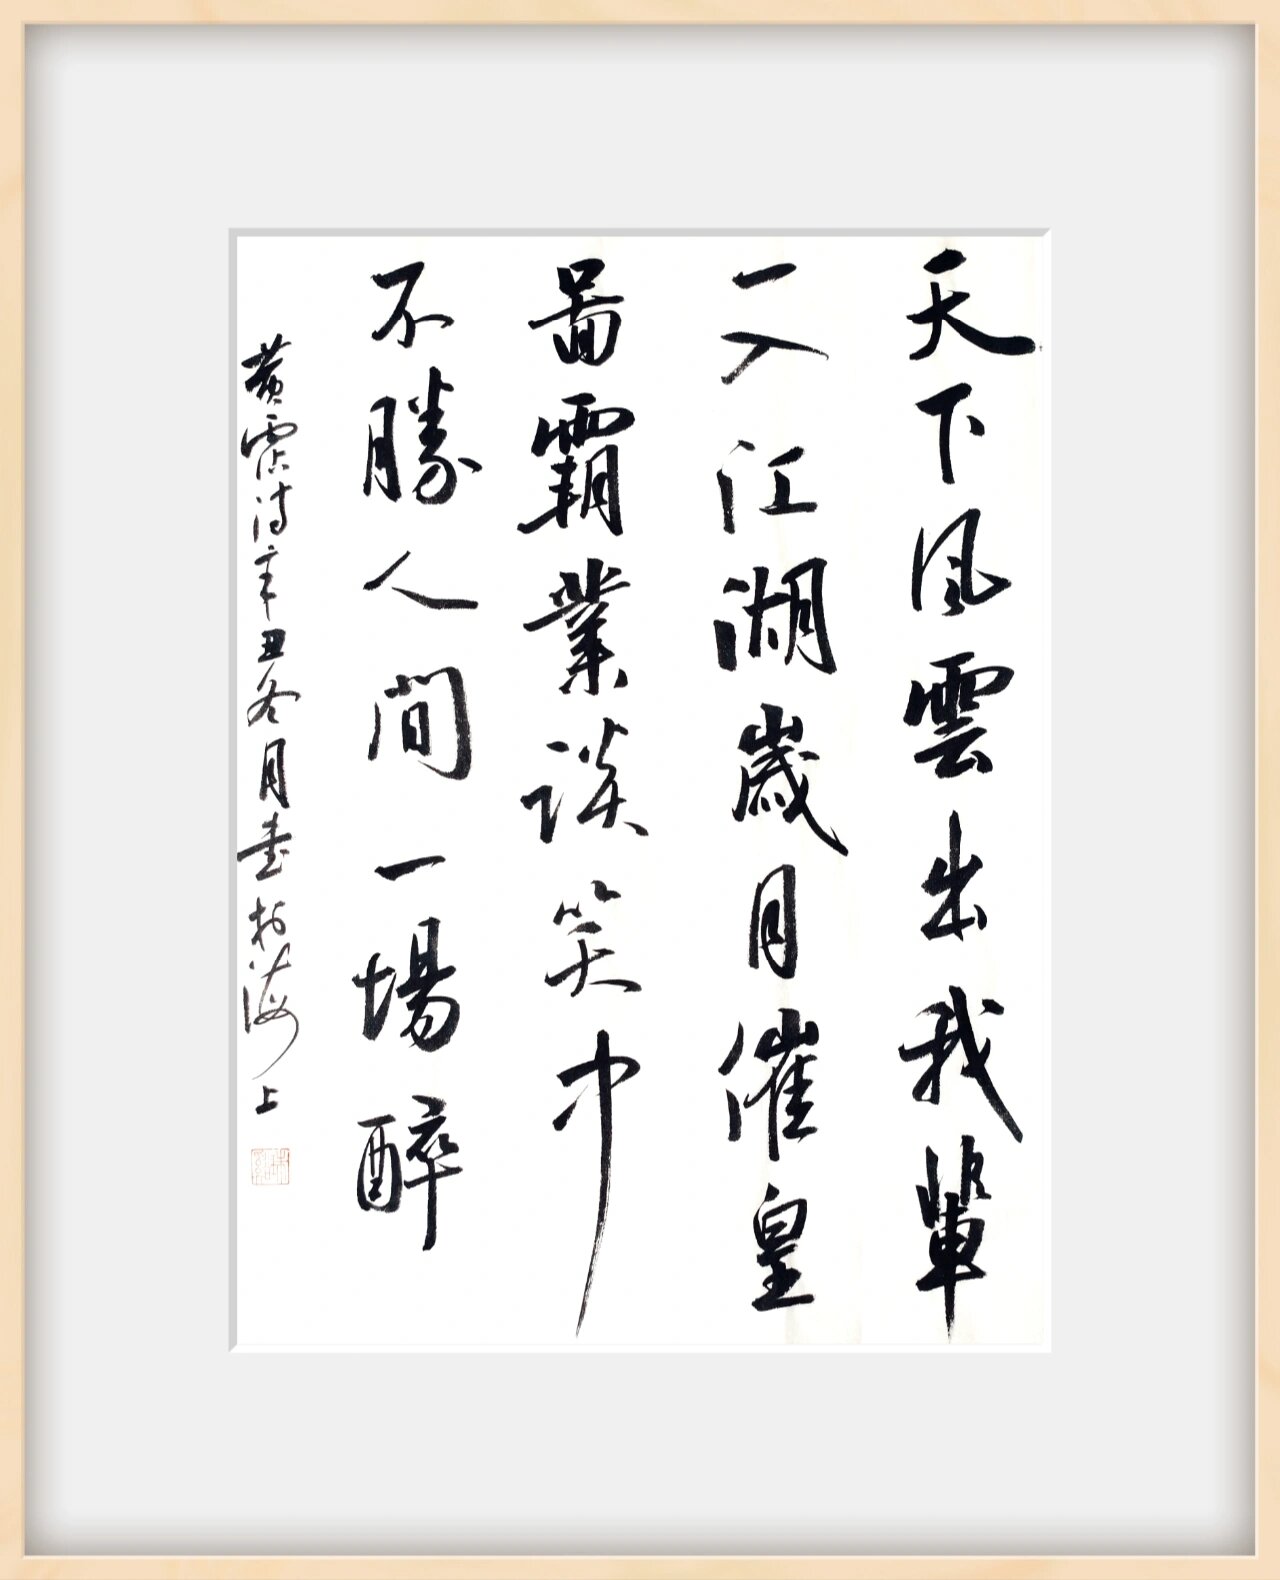 天下風雲出我輩
一入江湖歲月催皇
啚霸業談笑中
不勝人間一場醉
黄霑詩辛丑冬月書於海上